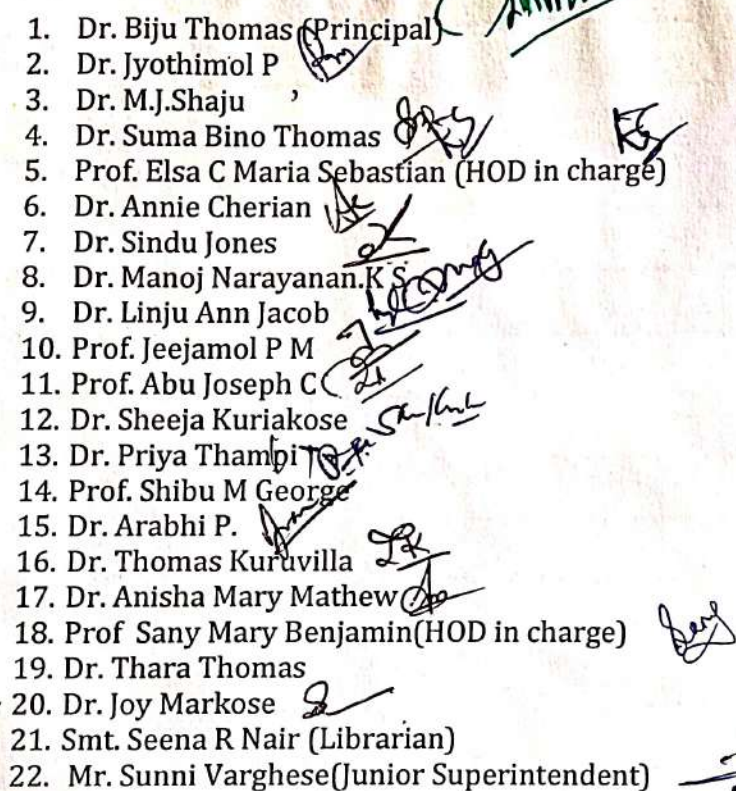 1. Dr. Biju Thomas (Principal)
2. Dr. Jyothimol P
3. Dr. M.J.Shaju
4. Dr. Suma Bino Thomas
5. Prof. Elsa C Maria Sebastian (HOD in charge)
6. Dr. Annie Cherian
7. Dr. Sindu Jones
8. Dr. Manoj Narayanan.K S
9. Dr. Linju Ann Jacob
10. Prof. Jeejamol P M
11. Prof. Abu Joseph C
12. Dr. Sheeja Kuriakose
13. Dr. Priya Thambi T
14. Prof. Shibu M George
15. Dr. Arabhi P.
16. Dr. Thomas Kuruvilla
17. Dr. Anisha Mary Mathew
18. Prof Sany Mary Benjamin(HOD in charge)
19. Dr. Thara Thomas
20. Dr. Joy Markose
21. Smt. Seena R Nair (Librarian)
22. Mr. Sunni Varghese(Junior Superintendent)